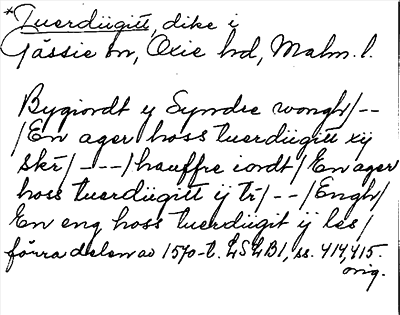 *Tuerdiigitt, dike i
Gässie sn, Oxie hd, Malm. l.
Bygiordt y Syndre wongh/--
/En ager hoss tuerdiigitt xij
skr/ ---/hauffre iordt/En ager
hoss tuerdiigitt ij tr/--/Engh/
En eng hoss tuerdiigit ij les/
förra delen av 1570-t. LSLB1, ss. 414, 415.
orig.